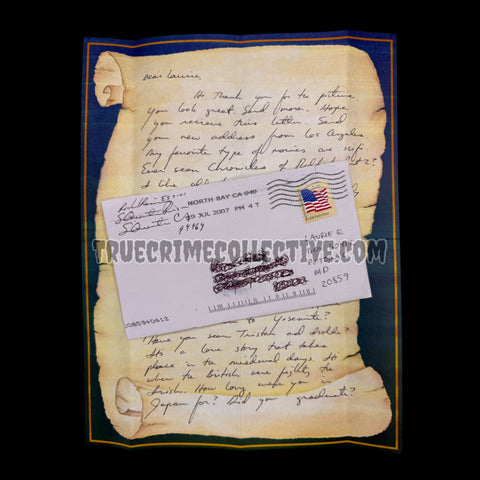 Dear Laurie,
Hi Thank you for the picture.
You look great. Send more. Hope
you recieve this letter. Send
your new address from Los Angeles.
My favorite type of movies are scifi.
Ever seen Chronicles of 2?
NORTH BAY CA 949
19 JUL 2007 PM 4 T
94964
TRUECRIMECOLLECTIVE.COM
LAURIE E
MD
20859
to Yosemite?
Have you seen Tristan and Isolde?
Its a love story that takes
place in the mideval days. Its
when the British were fighting the
Irish. How long were you in
Japan for? Did you graduate?